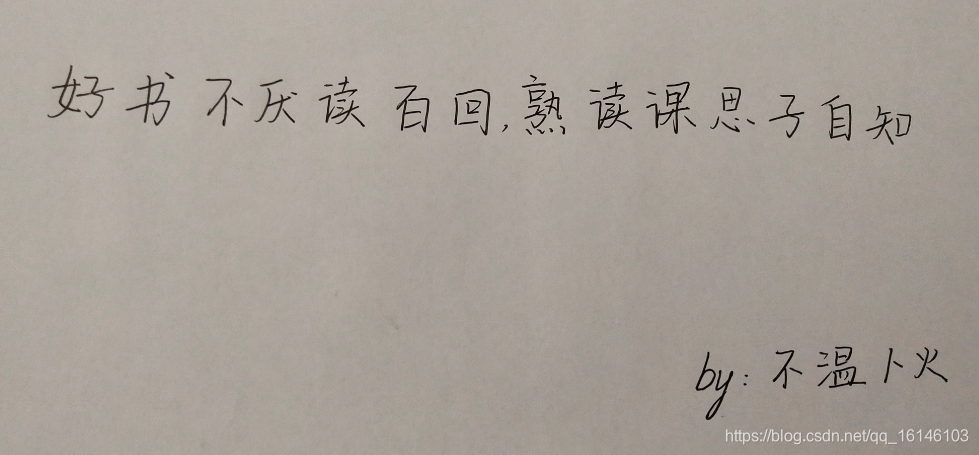 好书不厌读百回,熟读课思子自知
by:不温卜火
https://blog.csdn.net/qq_16146103